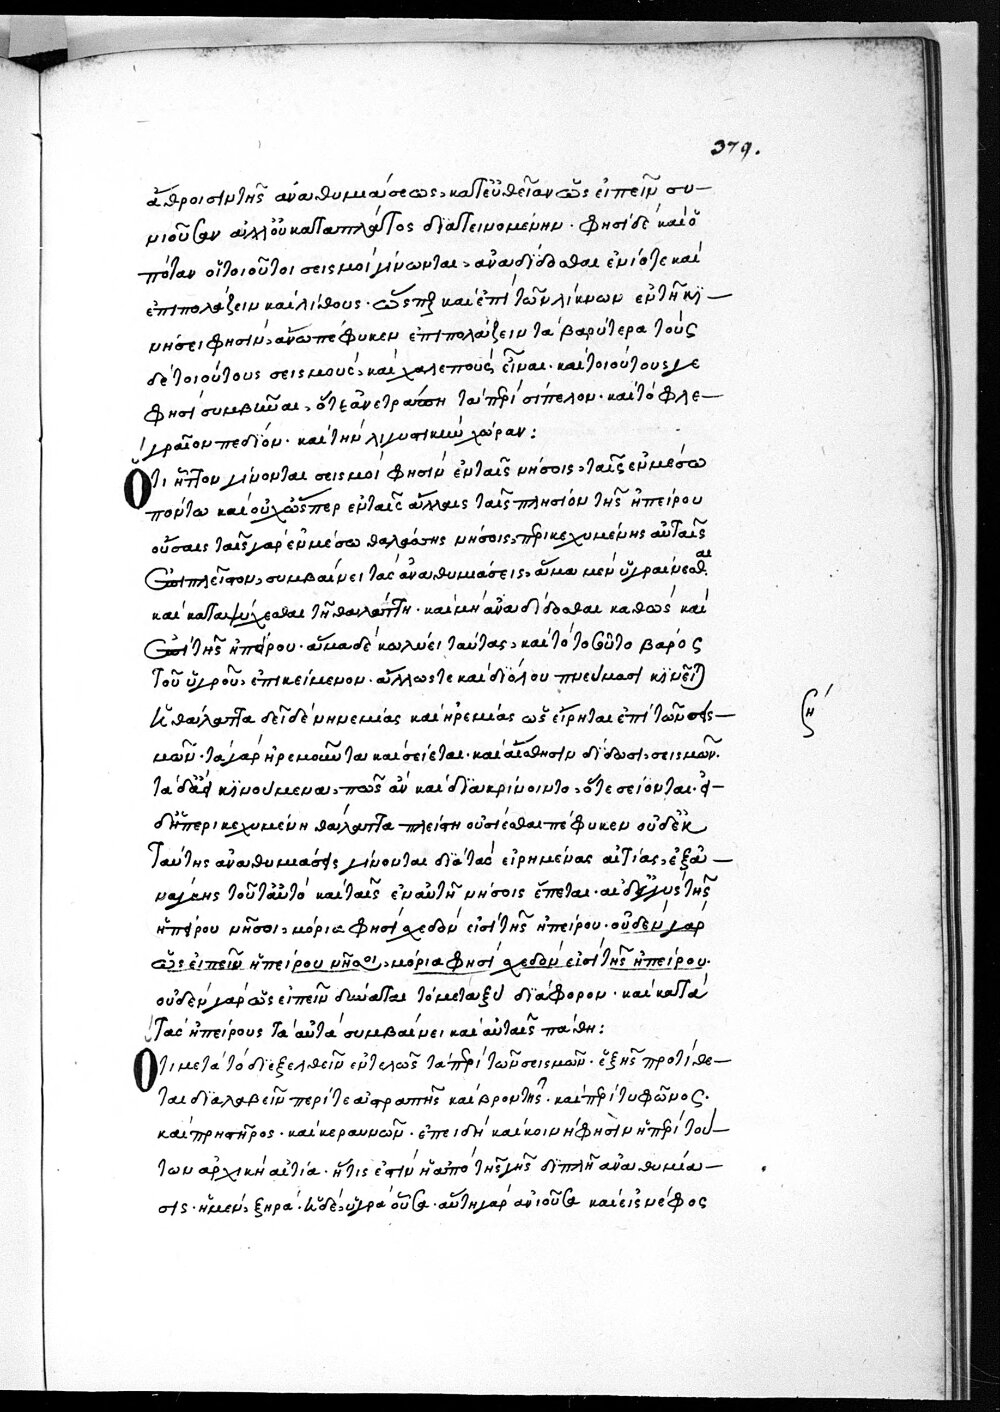 379.
ἄθροισιν τῆς ἀναθυμιάσεως, κατ' εὐθεῖαν ὡς εἰπεῖν συ-
νιοῦσαν ἀλλ' οὐ κατὰ πλάτος διατεινομένην. φησὶ δὲ καὶ ὁ
πόταν οἱ τοιοῦτοι σεισμοὶ γίνωνται, ἀναδίδοσθαι ἐνίοτε καὶ
ἐπιπολάζειν καὶ λίθους. ὥσπερ καὶ ἐπὶ τῶν λίκνων ἐν τῇ κι-
νήσει φησὶν, ἄνω πέφυκεν ἐπιπολάζειν τὰ βαρύτερα τοὺς
δὲ τοιούτους σεισμοὺς, καὶ χαλεποὺς εἶναι. καὶ τοιούτους γε
φησὶ συμβῆναι, ὅτε ἀνετράπη τὰ περὶ σίπελον. καὶ τὸ φλε-
γραῖον πεδίον. καὶ τὴν λιγυστικὴν χώραν:
Ὅτι ἧττον γίνονται σεισμοὶ φησὶν ἐν ταῖς νήσοις, ταῖς ἐν μέσω
πόντω καὶ οὐχ ὥσπερ ἐν ταῖς ἄλλαις ταῖς πλησίον τῆς ἠπείρου
οὔσαις ταῖς γὰρ ἐν μέσω θαλάσσης νήσοις, περικεχυμένης αὐταῖς
ἐπὶ πλεῖστον, συμβαίνει τὰς ἀναθυμιάσεις, ἅμα μὲν ὑγραίνεσθαι
καὶ καταψύχεσθαι τῇ θαλάττη. καὶ μὴ ἀναδίδοσθαι καθὼς καὶ
ἐπὶ τῆς ἠπείρου. ἅμα δὲ κωλύει ταύτας, καὶ τὸ τοσοῦτο βάρος
τοῦ ὑγροῦ, ἐπικείμενον. ἄλλως τε καὶ διόλου πνεύμασι κινεῖται
ἡ θάλαττα δεῖ δὲ νηνεμίας καὶ ἠρεμίας ὡς εἴρηται ἐπὶ τῶν σεις-
μῶν. τὰ γὰρ ἠρεμοῦντα καὶ σείεται. καὶ αἴσθησιν δίδωσι, σεισμῶν.
τὰ δ' ἀεὶ κινούμενα, πῶς ἂν καὶ διακρίνοιντο, ὅτε σείονται. ἐ-
δὴ περικεχυμένη θάλαττα πλείστη οὐ σείεσθαι πέφυκεν οὐδ' ἐκ
ταύτης ἀναθυμιάσεις γίνονται διὰ τὰς εἰρημένας αἰτίας, ἐξ ἀ-
νάγκης τοῦτ' αὐτὸ καὶ ταῖς ἐν αὐτῇ νήσοις ἕπεται. αἱ δ' ἐγγὺς τῆς
ἠπείρου νῆσοι, μόρια φησὶ σχεδὸν εἰσὶ τῆς ἠπείρου. οὐδὲν γὰρ
ὡς εἰπεῖν ἠπείρου νῆσοι, μόρια φησὶ σχεδὸν εἰσὶ τῆς ἠπείρου.
οὐδὲν γὰρ ὡς εἰπεῖν δύναται τὸ μεταξὺ διάφορον. καὶ κατὰ
τὰς ἠπείρους τὰ αὐτὰ συμβαίνει καὶ αὐταῖς πάθη:
Ὅτι μετὰ τὸ διεξελθεῖν ἐντελῶς τὰ περὶ τῶν σεισμῶν. ἑξῆς προτίθε-
ται διαλαβεῖν περί τε ἀστραπῆς καὶ βροντῆς. καὶ περὶ τυφῶνος.
καὶ πρηστῆρος. καὶ κεραυνῶν. ἐπειδὴ καὶ κοινή φησιν ἡ περὶ τού-
των ἀρχικὴ αἰτία. ἥτις ἐστὶν ἡ ἀπὸ τῆς γῆς διπλῆ ἀναθυμία-
σις. ἡ μὲν, ξηρὰ. ἡ δὲ, ὑγρὰ οὖσα. αὕτη γὰρ ἀνιοῦσα καὶ εἰς νέφος